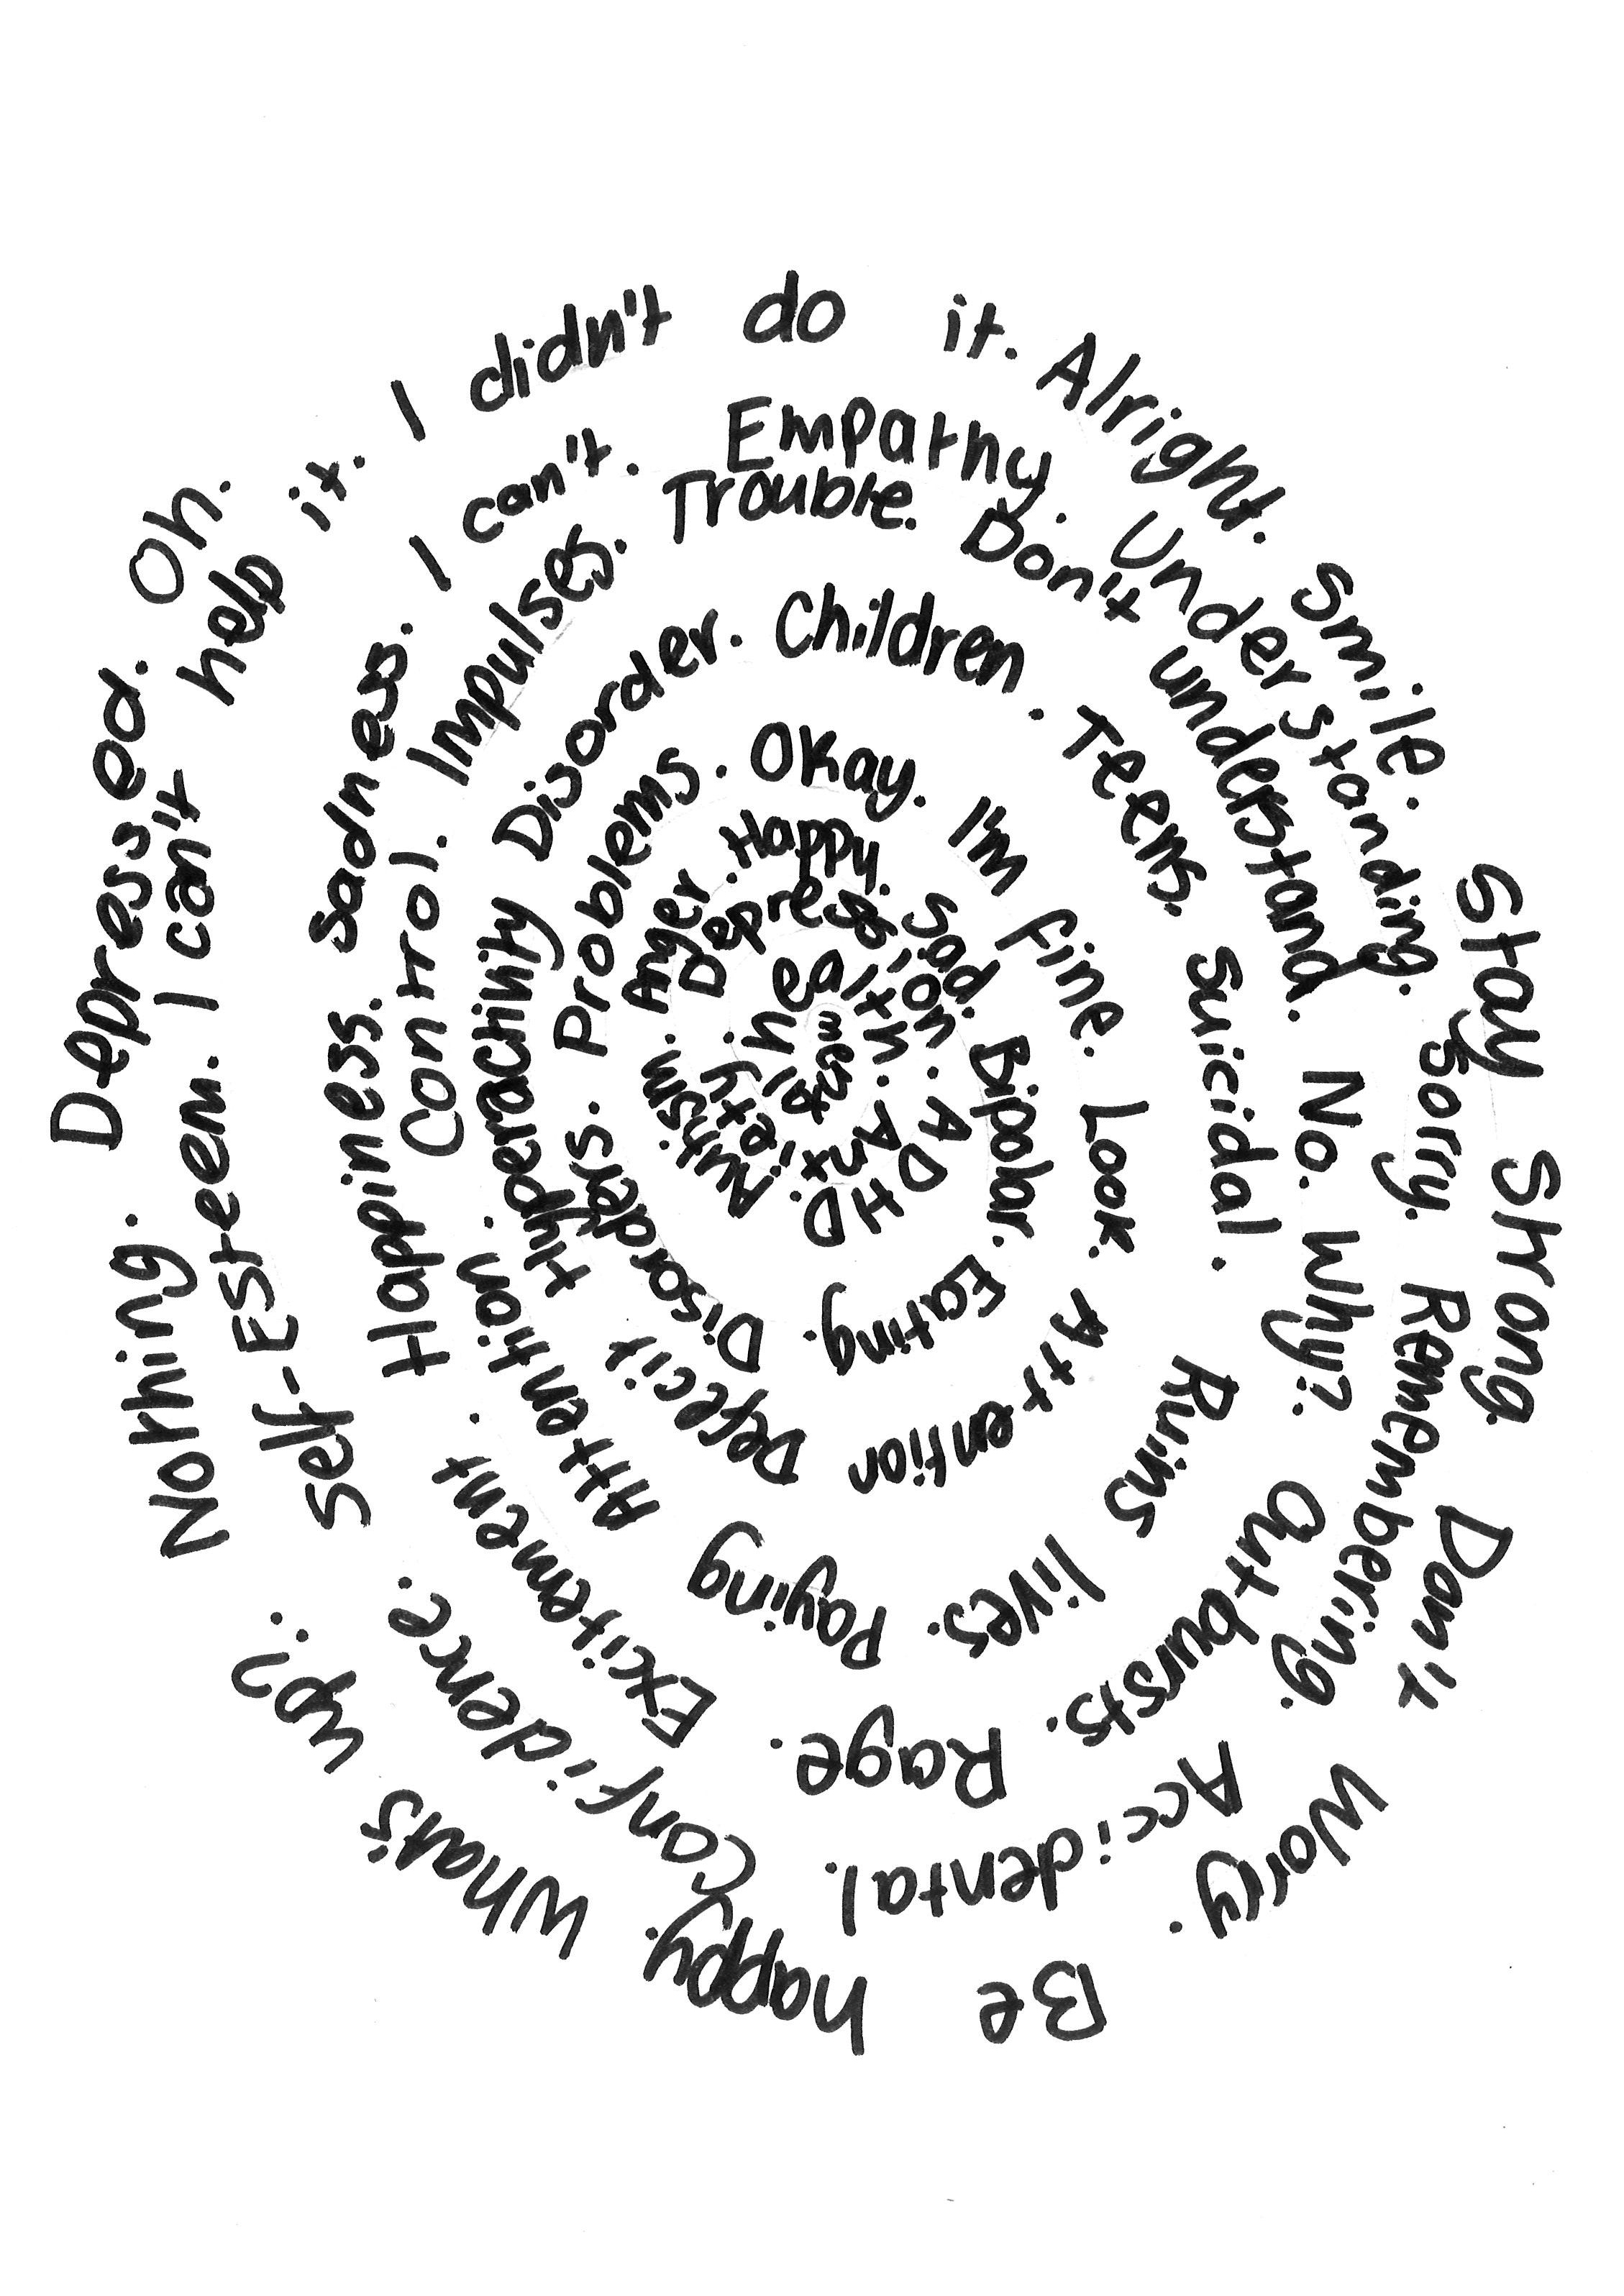 mental Health. Anxiety. Depression. ADHD. Autism. Anger. Happy. Sad. Bipolar. Eating. Disorders. Problems. Okay. I'm fine. Look. Attention Defecit Hyperactivity Disorder. Children. Teens. Suicidal. Ruins lives. Paying Attention. Control. Impulses. Trouble. Don't understand. No. Why?. Outbursts. Rage. Excitement. Happiness. Sadness. I can't. Empathy. Understanding. Sorry. Remembering. Accidental. Confidence. Self-Esteem. I can't help it. I didn't do it. Alright. Smile. Stay Strong. Don't Worry. Be happy. What's up?. Nothing. Depressed. Oh.